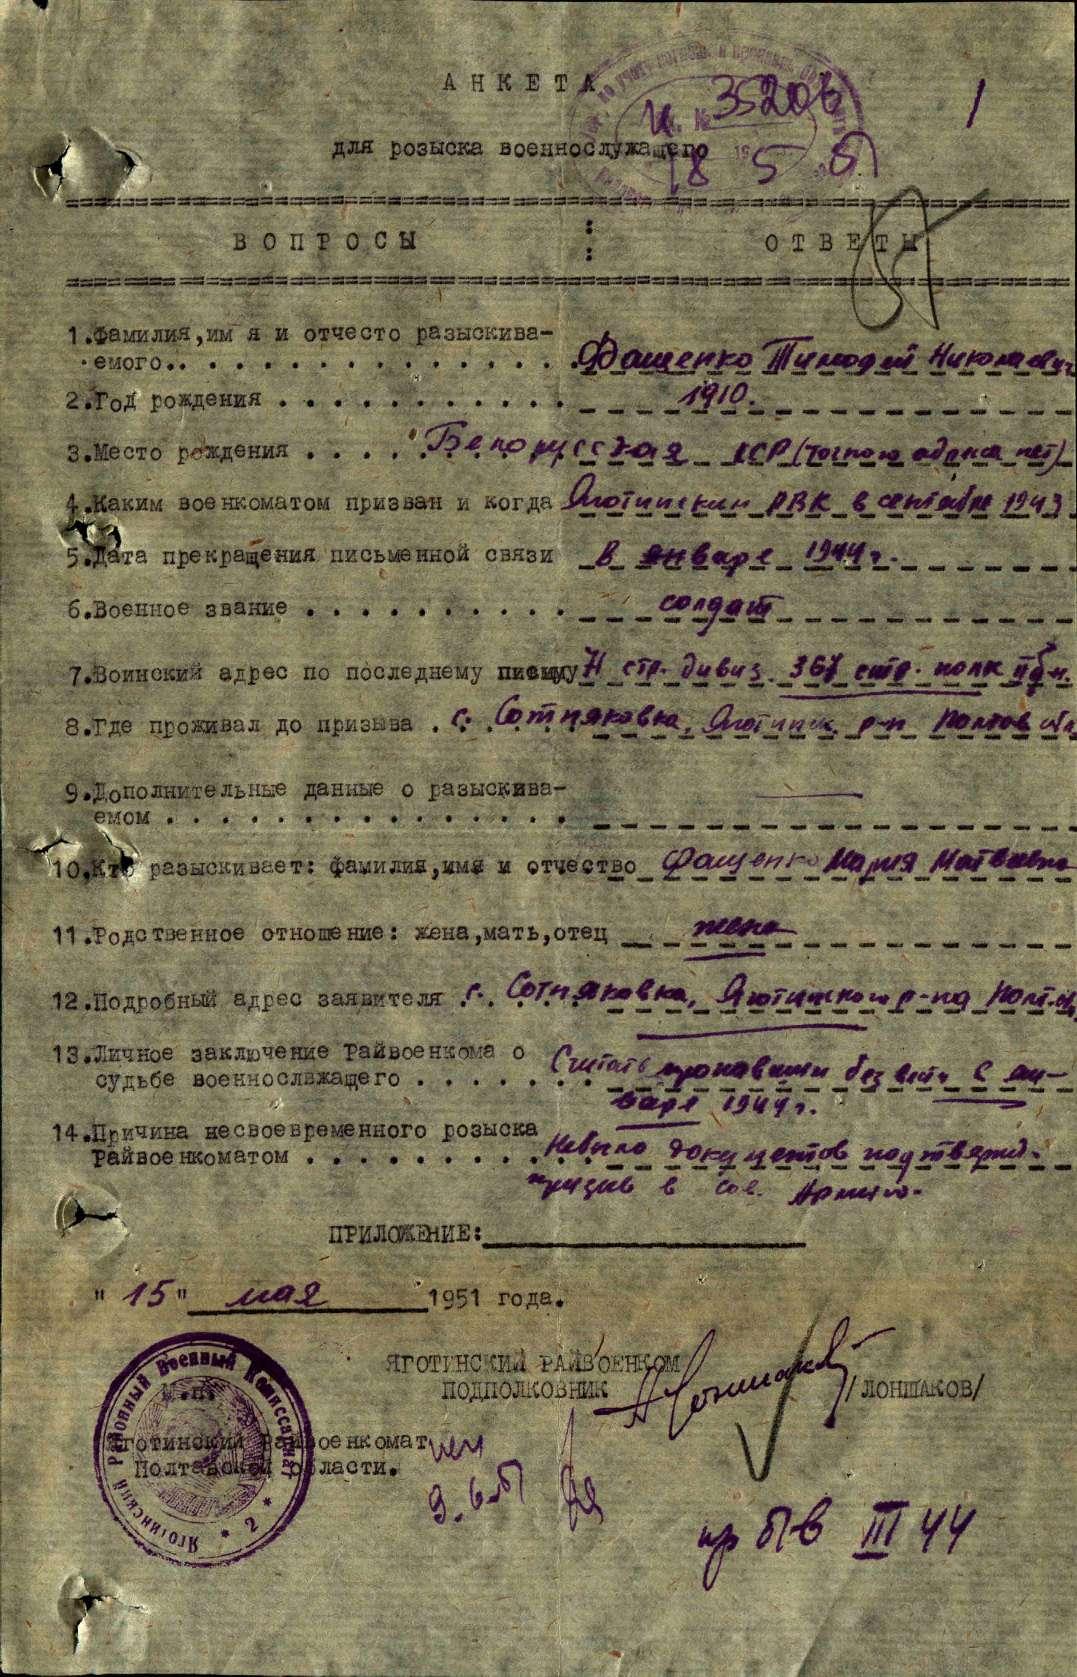 АНКЕТА
для розыска военнослужащего
и. № 35206
18 5 51
1
ВОПРОСЫ ОТВЕТЫ
1.Фамилия,им я и отчесто разыскива-
емого.. Фащенко Тимофей Николаевич
2.Год рождения 1910.
3.Место рождения Белорусская ССР (точного адреса нет)
4.Каким военкоматом призван и когда Яготинским РВК в сентябре 1943
5.Дата прекращения письменной связи В январе 1944 г.
6.Военное звание солдат
7.Воинский адрес по последнему письму 71 стр. дивиз. 367 стр. полк
8.Где проживал до призыва с. Сотняковка, Яготинск. р-н Полтав обл
9.Дополнительные данные о разыскива-
емом —
10.Кто разыскивает: фамилия,имя и отчество Фащенко Мария Матвеевна
11.Родственное отношение: жена,мать,отец жена
12.Подробный адрес заявителя с. Сотняковка, Яготинского р-на Полт. об.
13.Личное заключение Райвоенкома о
судьбе военнослвжащего Считать пропавшим без вести с ян-
варе 1944 г.
14.Причина несвоевременного розыска
Райвоенкоматом Небыло документов подтвержд.
призыв в Сов. Армию.
ПРИЛОЖЕНИЕ:
" 15 " мая 1951 года.
ЯГОТИНСКИЙ РАЙВОЕНКОМ
ПОДПОЛКОВНИК /ЛОНШАКОВ/
М.п.
Яготинский Райвоенкомат
Полтавской области.
Яготинский Районный Военный Комиссариат * 2 *
9.6.51
пр б/в III 44